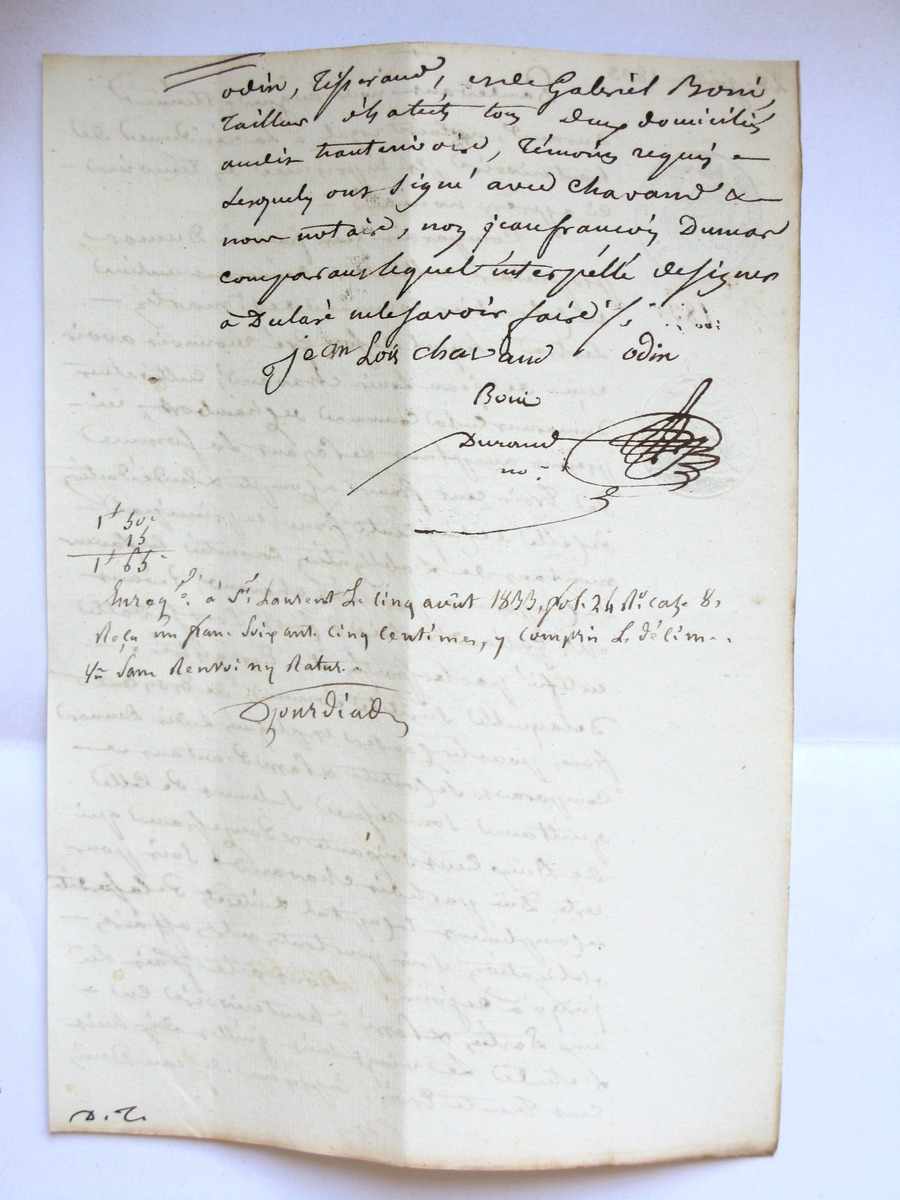 odin, Tisserand, et de Gabriel Boni
Tailleur d'habits tous deux domiciliés
audit hauterivoire, Témoins requis
Lesquels ont signé avec Chavand &
nous notaire, non jean françois Dumas
comparant lequel interpéllé de signer
à Declaré ne le savoir faire
jean Lois chavand odin
Boni
Durand
no.
1f 50c
15
1f 65
Enregé. à St. Laurent Le cinq août 1833, fol. 24 Ro. case 8,
Reçu un franc soixante cinq centimes, y compris Le décime.
sans Renvoi ny Rature.
Gourdiad
D. T.